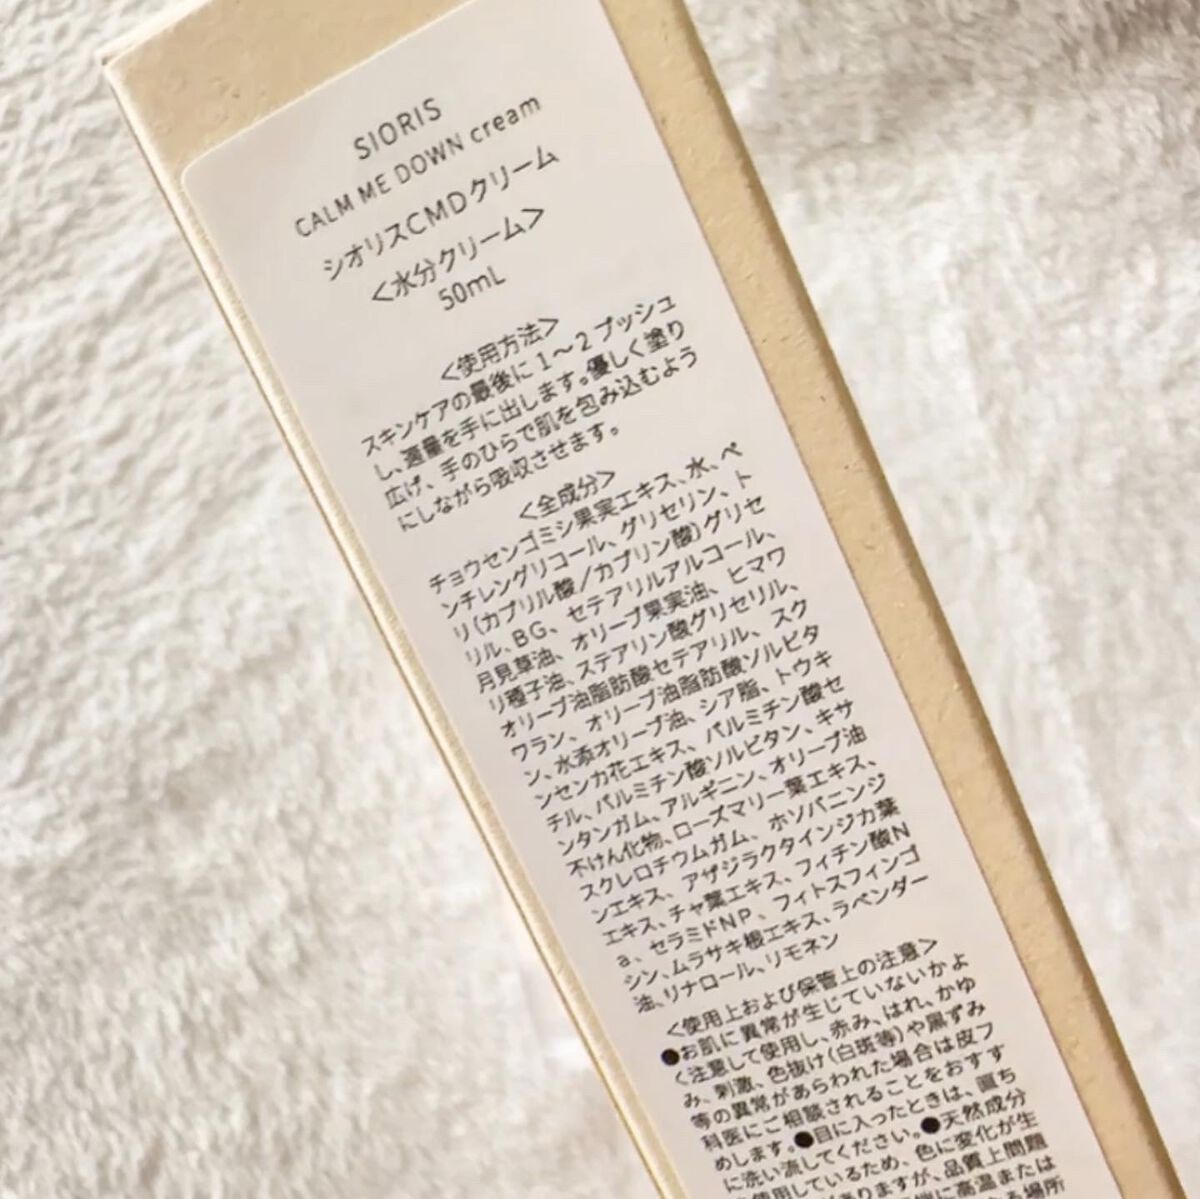 SIORIS
CALM ME DOWN cream
シオリスCMDクリーム
<水分クリーム>
50mL
<使用方法>
スキンケアの最後に1〜2プッシュ
し、適量を手に出します。優しく塗り
広げ、手のひらで肌を包み込むよう
にしながら吸収させます。
<全成分>
チョウセンゴミシ果実エキス、水、ペ
ンチレングリコール、グリセリン、ト
リ(カプリル酸/カプリン酸)グリセ
リル、BG、セテアリルアルコール、
月見草油、オリーブ果実油、ヒマワ
リ種子油、ステアリン酸グリセリル、
オリーブ油脂肪酸セテアリル、スク
ワラン、オリーブ油脂肪酸ソルビタ
ン、水添オリーブ油、シア脂、トウキ
ンセンカ花エキス、パルミチン酸セ
チル、パルミチン酸ソルビタン、キサ
ンタンガム、アルギニン、オリーブ油
不けん化物、ローズマリー葉エキス、
スクレロチウムガム、ホソバニンジ
ンエキス、アザジラクタインジカ葉
エキス、チャ葉エキス、フィチン酸N
a、セラミドNP、フィトスフィンゴ
シン、ムラサキ根エキス、ラベンダー
油、リナロール、リモネン
<使用上および保管上の注意>
●お肌に異常が生じていないかよ
く注意して使用し、赤み、はれ、かゆ
み、刺激、色抜け(白斑等)や黒ずみ
等の異常があらわれた場合は皮フ
科医にご相談されることをおすす
めします。●目に入ったときは、直ち
に洗い流してください。●天然成分
使用しているため、色に変化が生
ありますが、品質上問題
に高温または
場所